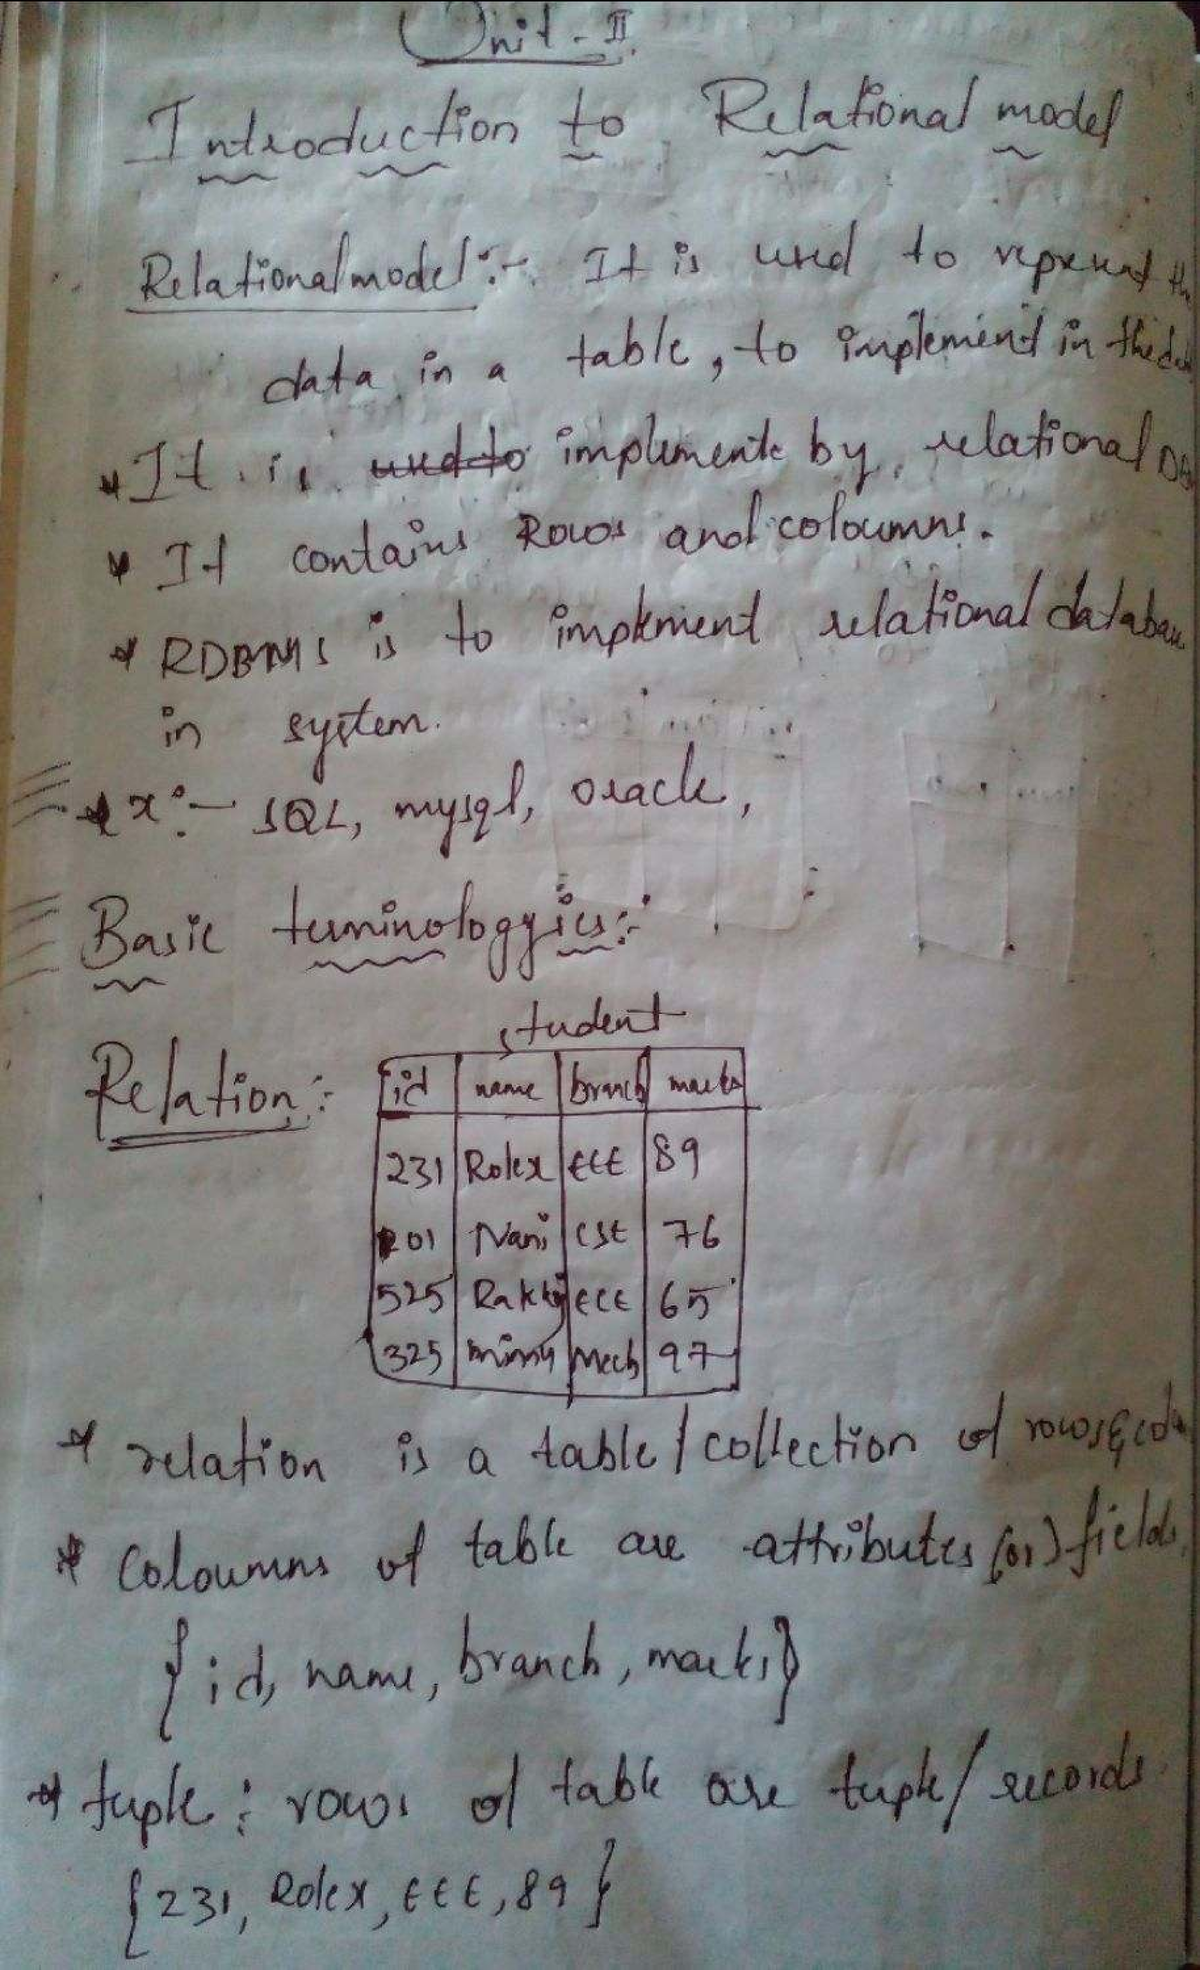 Unit - II
Introduction to Relational model
Relational model :- It is used to represent the
data in a table, to implement in the
* It is used to implements by relational
* It contains Rows and coloumns.
* RDBMS is to implement relational database
in system.
* x :- SQL, mysql, oracle,
Basic terminologyies :-
student
Relation :-
id name branch marks
231 Rolex EEE 89
201 Nani CSE 76
525 Rakky ECE 65
325 Mech 97
* relation is a table / collection of rows &
* Coloumns of table are attributes (or) fields.
{ id, name, branch, marks }
* tuple : rows of table are tuple / records.
{ 231, Rolex, EEE, 89 }